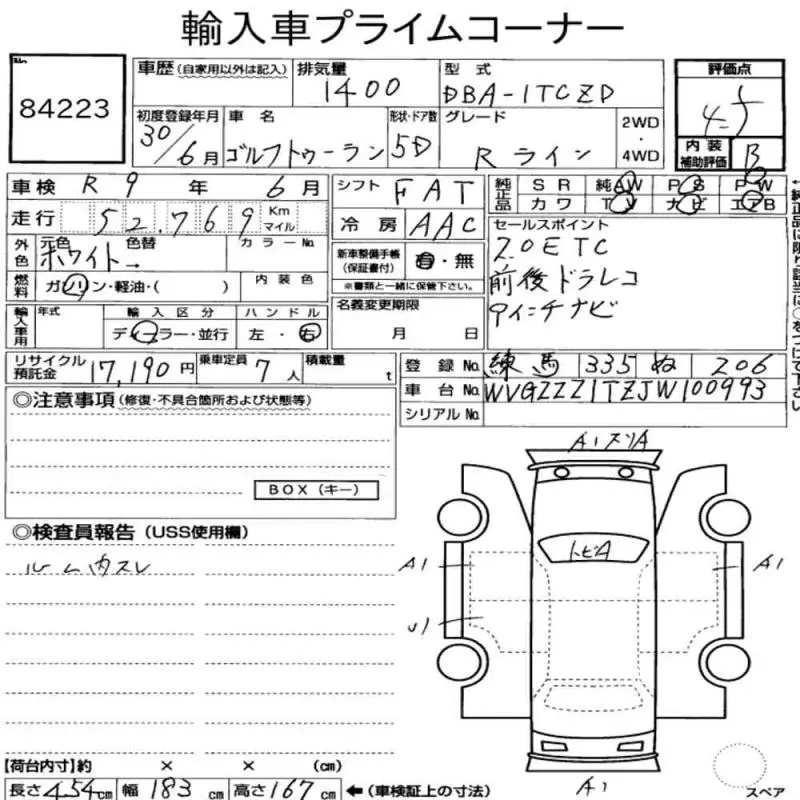 輸入車プライムコーナー
No.
84223
車歴 (自家用以外は記入)
排気量
1400
型式
DBA-1TCZD
評価点
4.5
初度登録年月
30/6月
車名
ゴルフトゥーラン
形状・ドア数
5D
グレード
Rライン
2WD
・
4WD
内装
補助評価
B
車検 R 9 年 6 月
シフト FAT
純正品
SR 純AW PS PW
カワ TV ナビ エアB
走行 52,769 Km マイル
冷房 AAC
セールスポイント
2.0ETC
前後ドラレコ
9インチナビ
外色
元色 色替
ホワイト→
カラーNo.
新車整備手帳
(保証書付)
有・無
※書類と一緒に保管下さい。
燃料
ガソリン・軽油・( )
内装色
名義変更期限
月 日
輸入車用
年式
輸入区分
ディーラー・並行
ハンドル
左・右
リサイクル
預託金
17,190円
乗車定員
7人
積載量
t
登録No. 練馬 335 ぬ 206
車台No. WVGZZZ1TZJW100993
シリアルNo.
◎注意事項 (修復・不具合箇所および状態等)
BOX (キー)
◎検査員報告 (USS使用欄)
ルーム内スレ
A1スリA
トビA
A1
A1
U1
A1
スペア
【荷台内寸】約 × × (cm)
長さ 454cm 幅 183cm 高さ 167cm ←(車検証上の寸法)